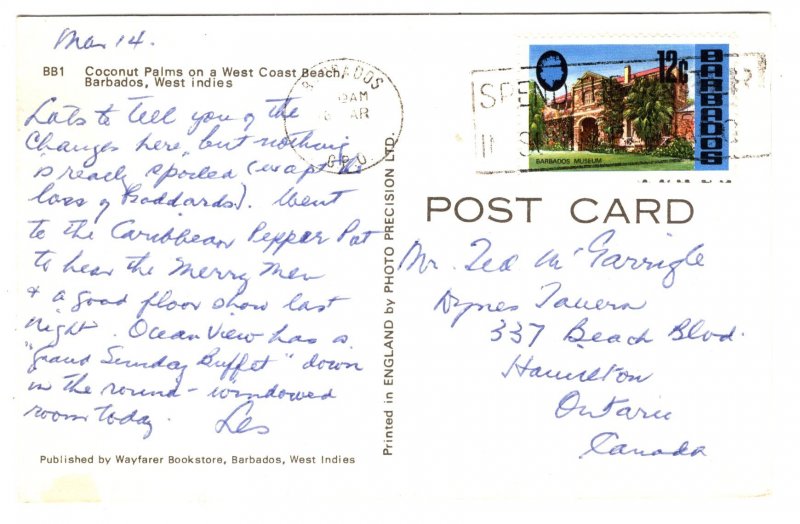 Mar 14.
BB1 Coconut Palms on a West Coast Beach,
Barbados, West indies
Lots to tell you of the
changes here, but nothing
is really spoiled (except the
loss of Goddards). Went
to the Caribbean Pepper Pot
to hear the Merry Men
& a good floor show last
night. Ocean View has a
"grand Sunday Buffet" down
in the round-windowed
room today. Les
Published by Wayfarer Bookstore, Barbados, West Indies
Printed in ENGLAND by PHOTO PRECISION LTD.
BARBADOS
AM
MAR
G.P.O.
SPEND
IN
12c
BARBADOS
BARBADOS MUSEUM
POST CARD
Mr. Ted McGarrigle
Dynes Tavern
337 Beach Blvd.
Hamilton
Ontario
Canada